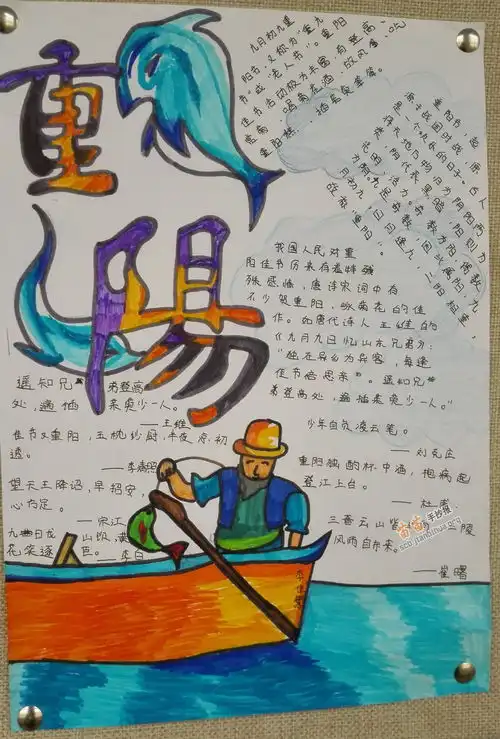 重陽
九月初九重
阳节，又称为"重九
节"或"老人节"。重阳
佳节活动极为丰富，有登高、
赏菊、喝菊花酒、吃
重阳糕、插茱萸等。
重阳节，起源
于战国时期，
是一个欢乐的日子。古人
将天地万物归为阴阳两
类，阴代表黑暗，阳则
我国人民对重
阳佳节历来有着特
殊感情，唐诗宋词中有
不少贺重阳，咏菊花的佳
作。如唐代诗人王维的
《九月九日忆山东兄弟》：
"独在异乡为异客，每逢
佳节倍思亲"。遥知兄
弟登高处，遍插茱萸少一人。"
遥知兄弟登高
处，遍插茱萸少一人。
——王维
佳节又重阳，玉枕纱厨，半夜凉初
透。
——李清照
望天王降诏，早招安，
心方足。
——宋江
九日龙山饮，黄
花笑逐臣。——李白
少年自负凌云笔。
——刘克庄
重阳独酌杯中酒，抱病起
登江上台。
——杜甫
三晋云山皆
风雨自
——崔曙
手抄报
scb.jianbihua.org